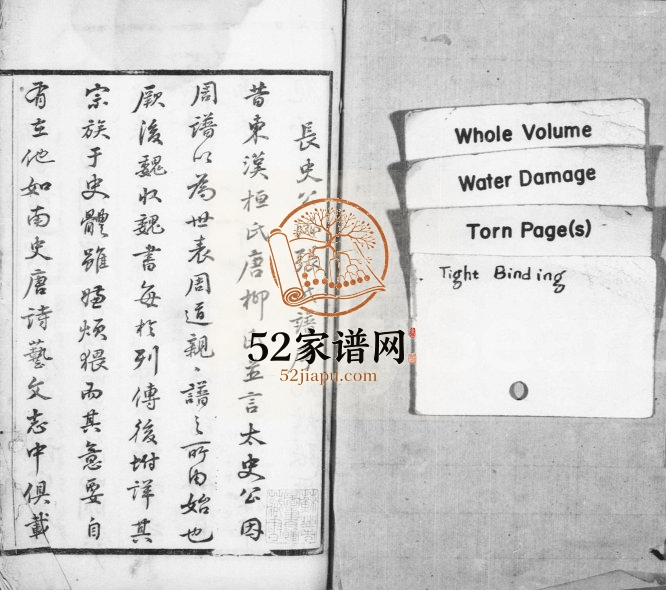 長史公
張
譜序
昔東漢桓氏唐柳氏並言太史公因
周譜以為世表周道親〻譜之所由始也
厥後魏收魏書每於列傳後坿詳其
宗族于史體雖嫌煩猥而其意要自
有在他如南史唐詩藝文志中俱載
52家谱网
52jiapu.com
Whole Volume
Water Damage
Torn Page(s)
Tight Binding